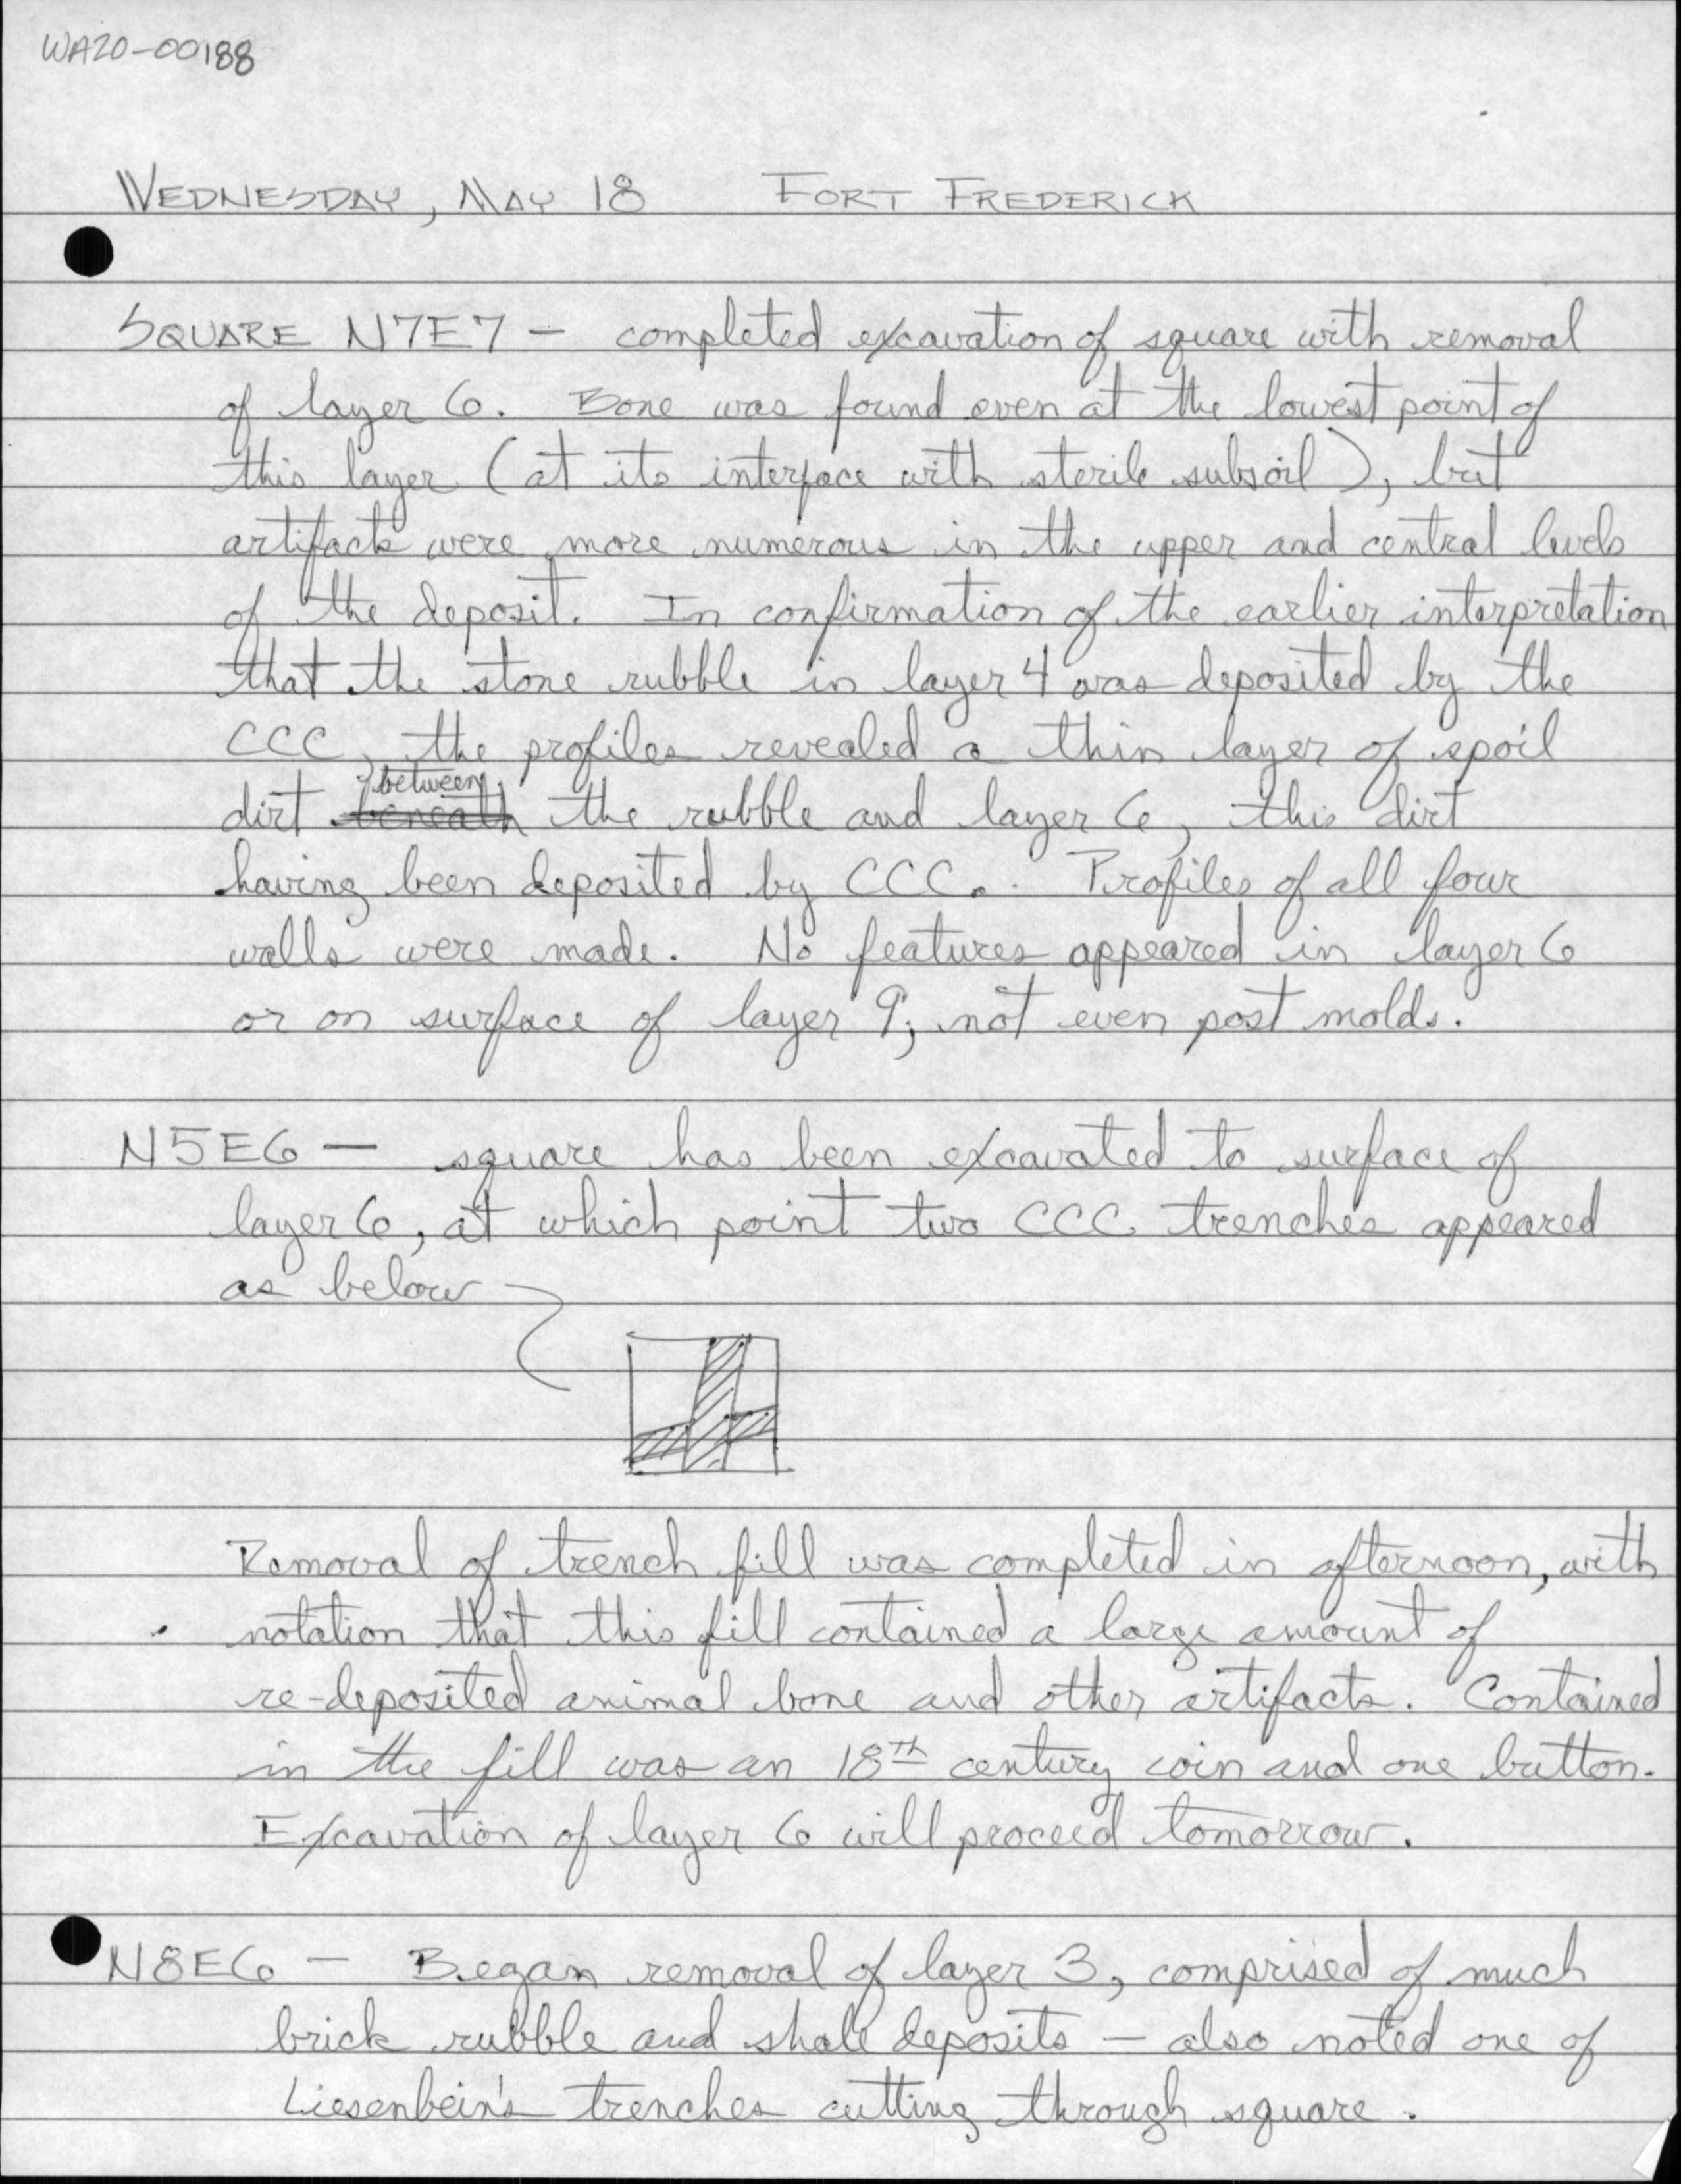 WA20-00188
WEDNESDAY, MAY 18 FORT FREDERICK
SQUARE N7E7 - completed excavation of square with removal
of layer 6. Bone was found even at the lowest point of
this layer (at its interface with sterile subsoil), but
artifacts were more numerous in the upper and central levels
of the deposit. In confirmation of the earlier interpretation
that the stone rubble in layer 4 was deposited by the
CCC, the profiles revealed a thin layer of spoil
dirt beneath between the rubble and layer 6, this dirt
having been deposited by CCC. Profiles of all four
walls were made. No features appeared in layer 6
or on surface of layer 9; not even post molds.
N5E6 - square has been excavated to surface of
layer 6, at which point two CCC trenches appeared
as below
Removal of trench fill was completed in afternoon, with
notation that this fill contained a large amount of
re-deposited animal bone and other artifacts. Contained
in the fill was an 18th century coin and one button.
Excavation of layer 6 will proceed tomorrow.
N8E6 - Began removal of layer 3, comprised of much
brick rubble and shale deposits - also noted one of
Liesenbein's trenches cutting through square.